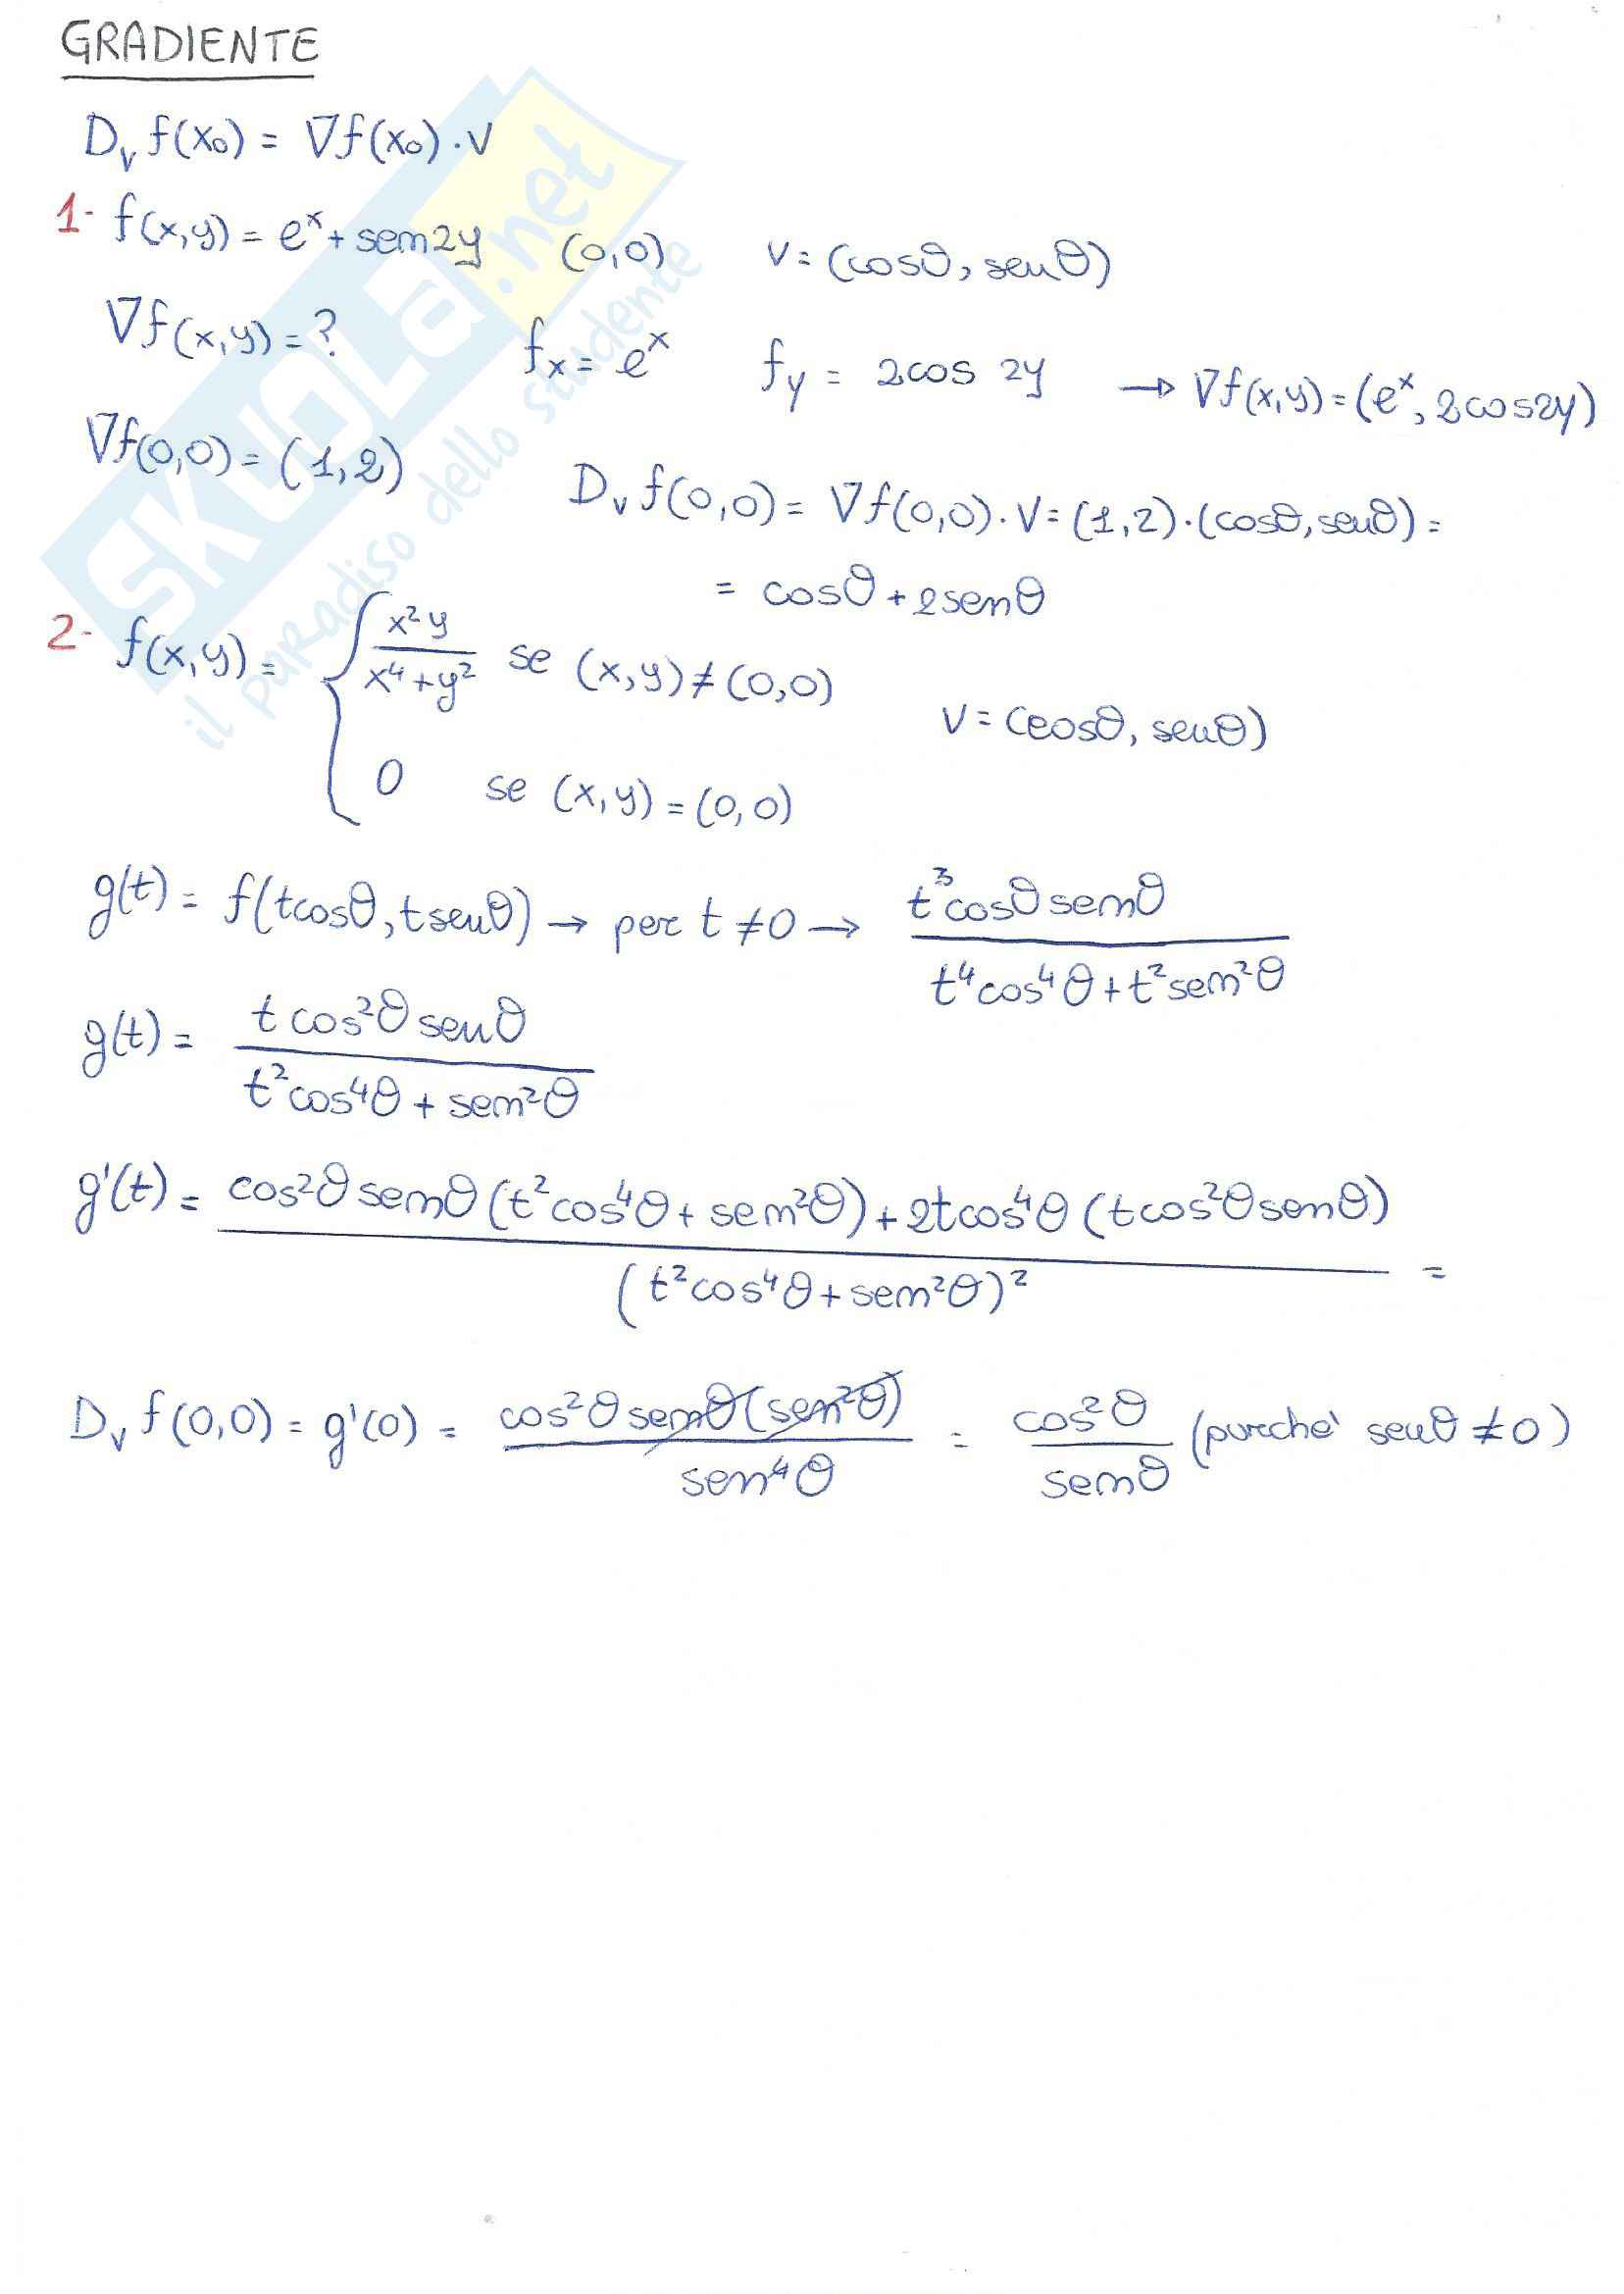 GRADIENTE
Dᵥ f(x₀) = ∇f(x₀)·v
1- f(x,y) = eˣ + sen2y (0,0) v = (cosθ, senθ)
∇f(x,y) = ? fₓ = eˣ f_y = 2cos 2y → ∇f(x,y) = (eˣ, 2cos2y)
∇f(0,0) = (1,2) Dᵥ f(0,0) = ∇f(0,0)·v = (1,2)·(cosθ, senθ) =
= cosθ + 2senθ
2- f(x,y) = { x²y / (x⁴+y²) se (x,y) ≠ (0,0)
v = (cosθ, senθ)
0 se (x,y) = (0,0)
g(t) = f(tcosθ, tsenθ) → per t ≠ 0 → t³cosθ senθ / (t⁴cos⁴θ + t²sen²θ)
g(t) = t cos²θ senθ / (t²cos⁴θ + sen²θ)
g'(t) = cos²θ senθ (t²cos⁴θ + sen²θ) + 2tcos⁴θ (tcos²θ senθ) / (t²cos⁴θ + sen²θ)² =
Dᵥ f(0,0) = g'(0) = cos²θ senθ (sen²θ) / sen⁴θ = cos²θ / senθ (purché senθ ≠ 0)
SKUOLa.net
il paradiso dello studente